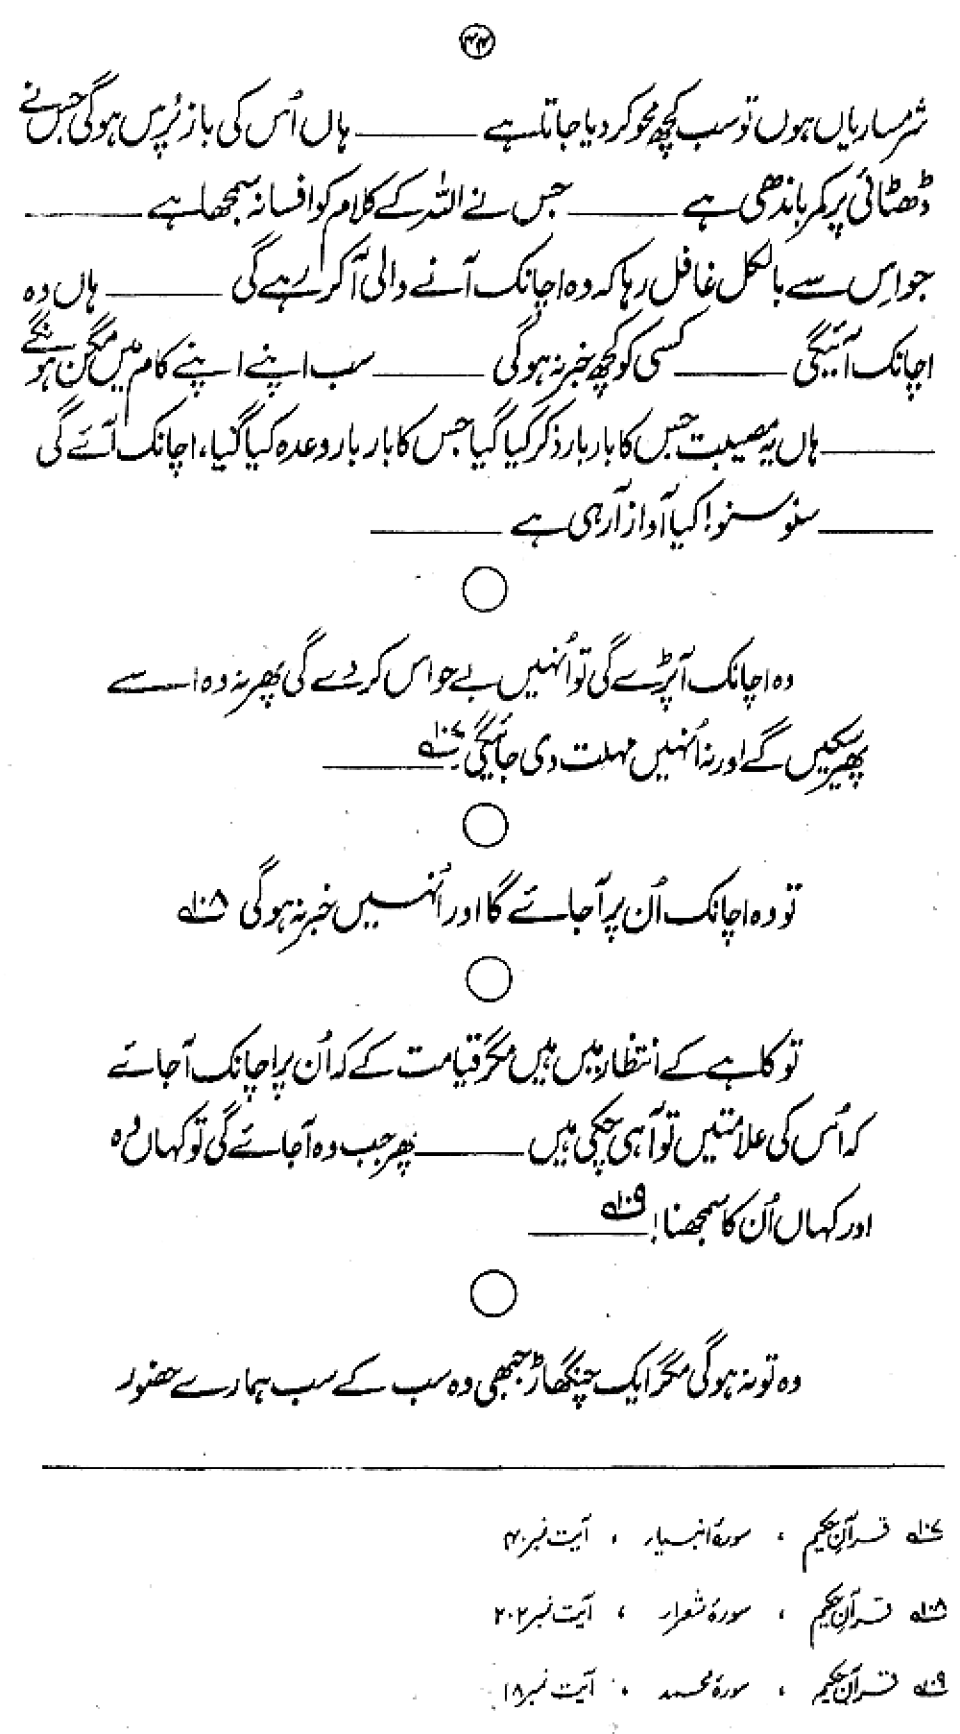 ۴۴
شرمساریاں ہوں تو سب کچھ محو کر دیا جاتا ہے ــــــــ ہاں اُس کی باز پُرس ہوگی جس نے
ڈھٹائی پر کمر باندھی ہے ــــــــ جس نے اللہ کے کلام کو افسانہ سمجھا ہے ــــــــ
جو اِس سے بالکل غافل رہا کہ وہ اچانک آنے والی آکر رہے گی ــــــــ ہاں وہ
اچانک آئیگی ــــــــ کسی کو کچھ خبر نہ ہوگی ــــــــ سب اپنے اپنے کام میں مگن ہونگے
ــــــــ ہاں یہ مصیبت جس کا بار بار ذکر کیا گیا جس کا بار بار وعدہ کیا گیا، اچانک آئے گی
ــــــــ سنو سنو! کیا آواز آرہی ہے ــــــــ
وہ اچانک آپڑے گی تو اُنہیں بے حواس کر دے گی پھر نہ وہ اسے
پھیر سکیں گے اور نہ اُنہیں مہلت دی جائیگی ۱۰۷؎ ــــــــ
تو وہ اچانک اُن پر آجائے گا اور اُنہیں خبر نہ ہوگی ۱۰۸؎
تو کاہے کے انتظار میں ہیں مگر قیامت کے کہ اُن پر اچانک آجائے
کہ اُس کی علامتیں تو آہی چکی ہیں ــــــــ پھر جب وہ آجائے گی تو کہاں وہ
اور کہاں اُن کا سمجھنا! ۱۰۹؎ ــــــــ
وہ تو نہ ہوگی مگر ایک چنگھاڑ جبھی وہ سب کے سب ہمارے حضور
۱۰۷؎ قرآن حکیم ، سورۂ انبیاء ، آیت نمبر ۴۰
۱۰۸؎ قرآن حکیم ، سورۂ شعراء ، آیت نمبر ۲۰۲
۱۰۹؎ قرآن حکیم ، سورۂ محمد ، آیت نمبر ۱۸